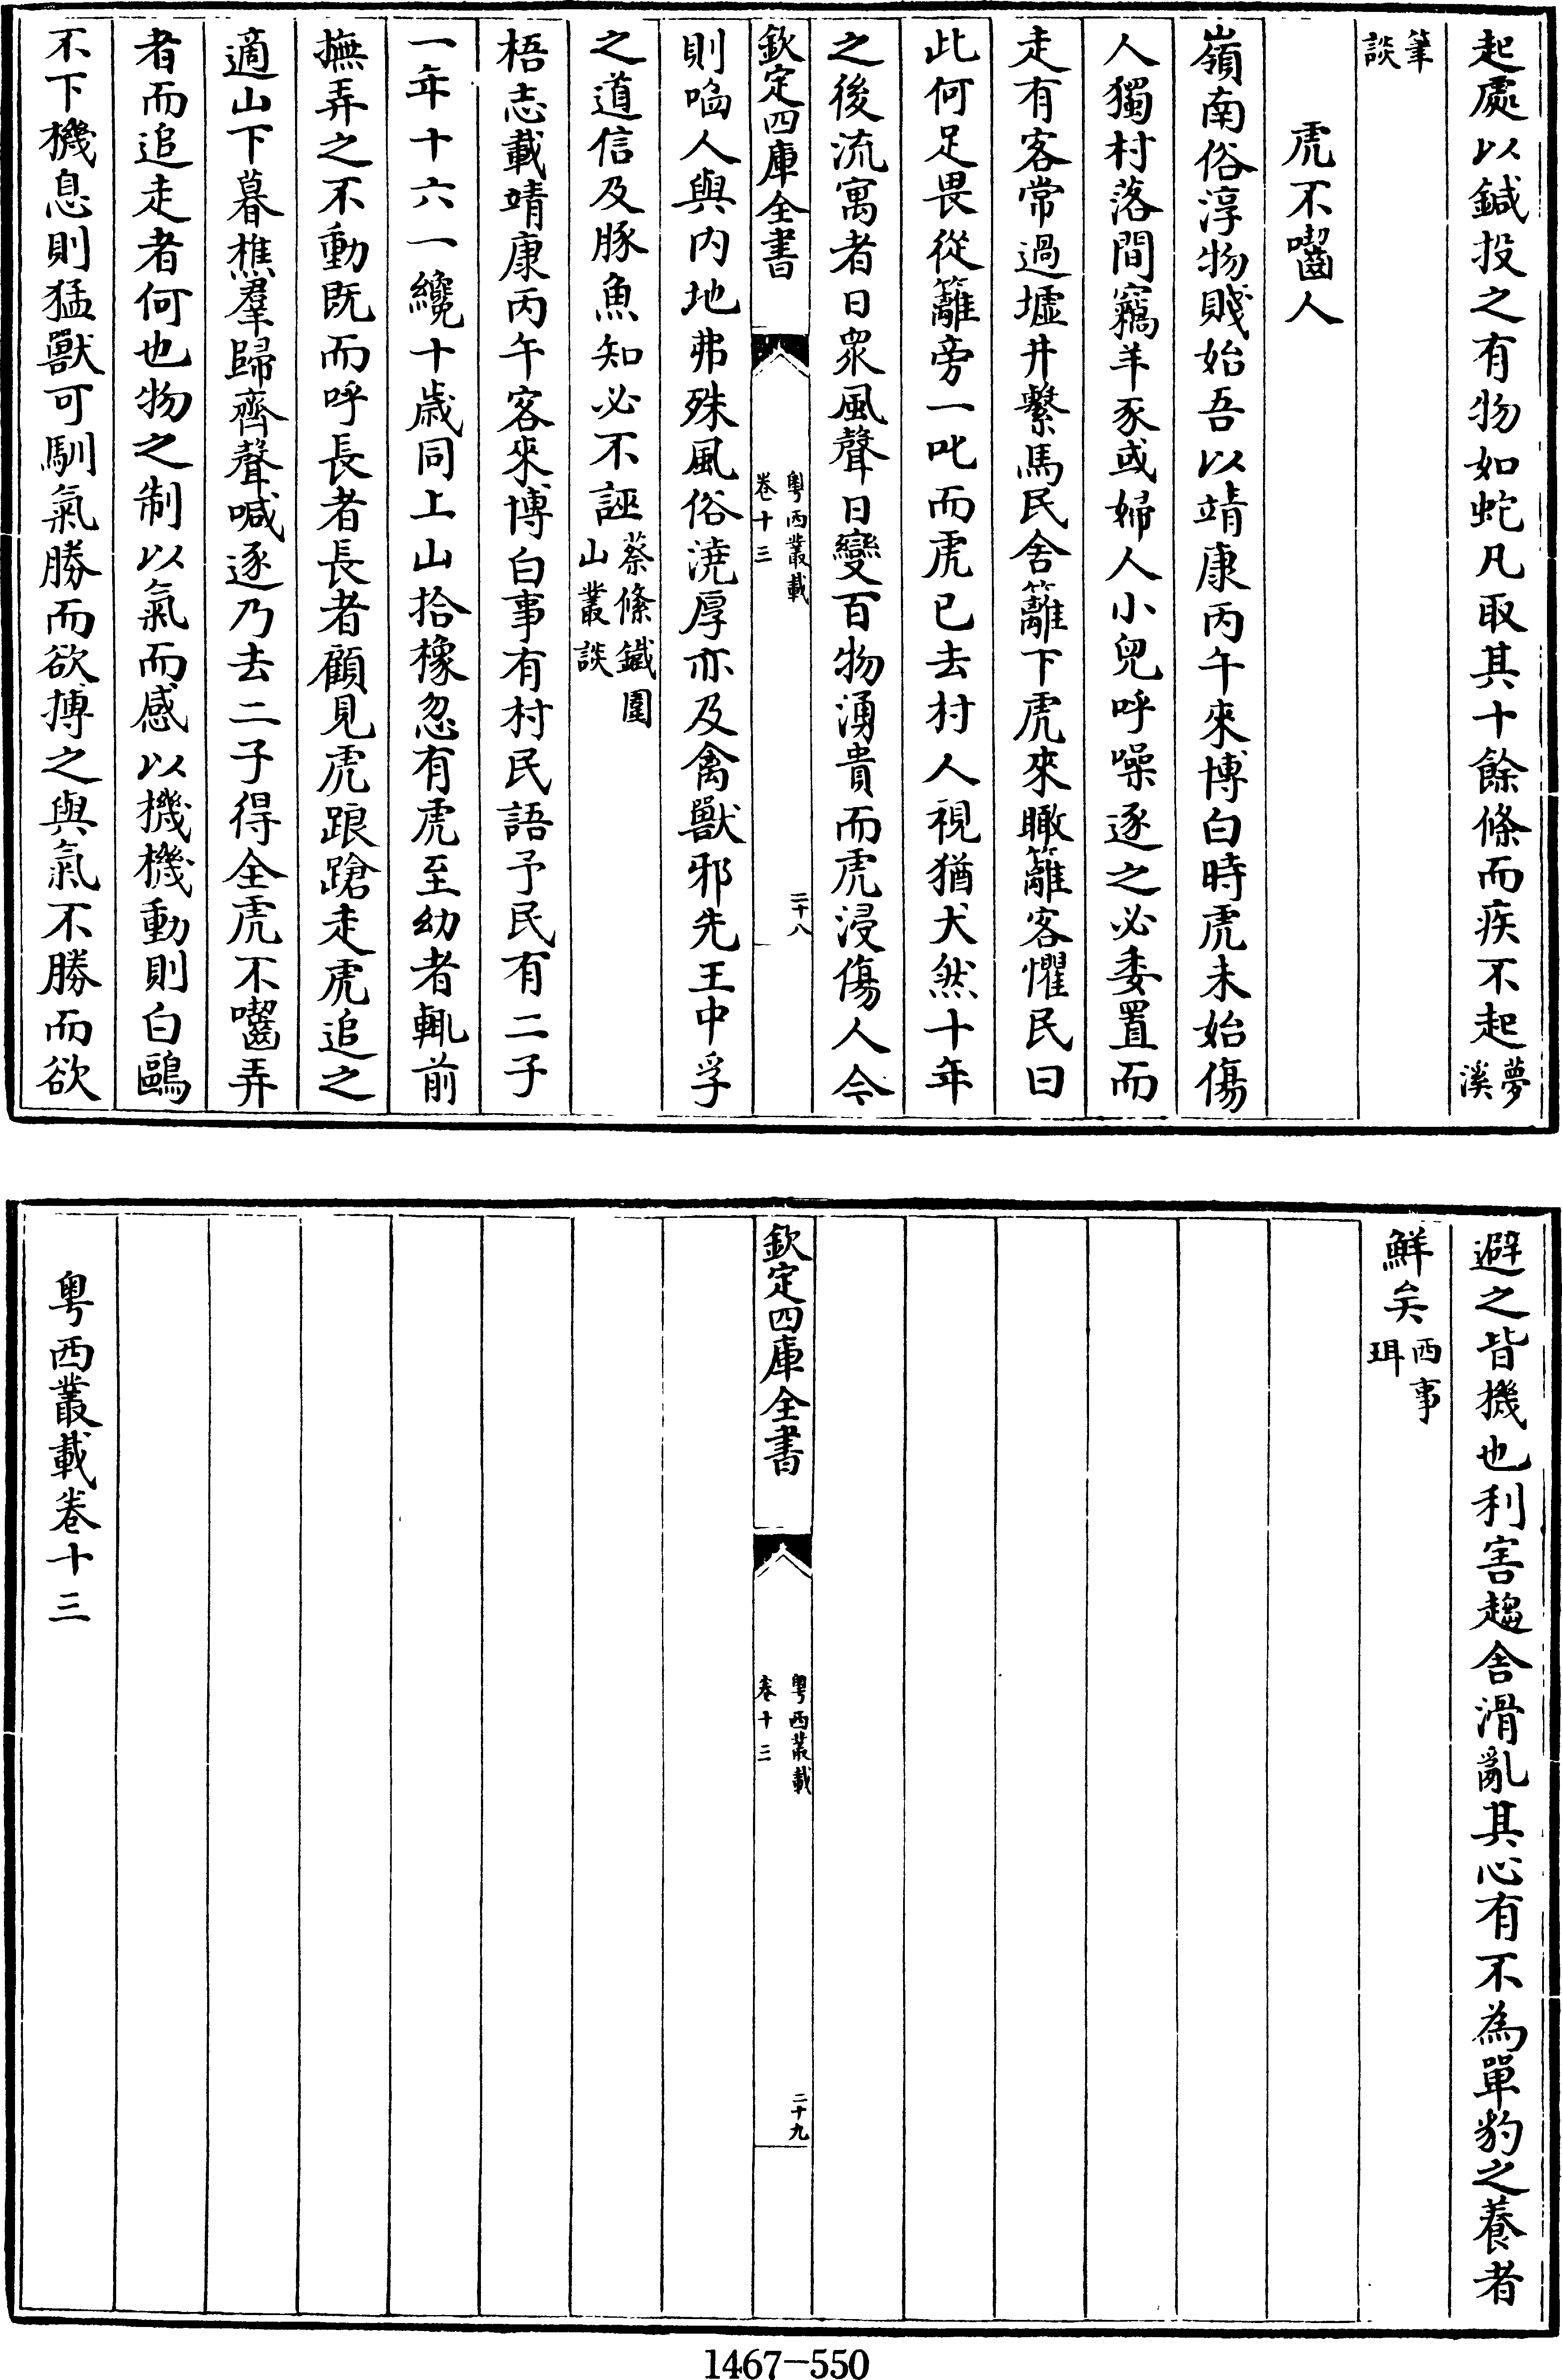 起處以鍼投之有物如蛇凡取其十餘條而疾不起夢溪
筆談
虎不囓人
嶺南俗淳物賤始吾以靖康丙午來博白時虎未始傷
人獨村落間竊羊豕或婦人小兒呼噪逐之必委置而
走有客常過墟井繫馬民舍籬下虎來瞰籬客懼民曰
此何足畏從籬旁一叱而虎已去村人視猶犬然十年
之後流寓者日衆風聲日變百物湧貴而虎浸傷人今
欽定四庫全書
粤西叢載
卷十三
二十八
則啗人與内地弗殊風俗澆厚亦及禽獸邪先王中孚
之道信及豚魚知必不誣蔡絛鐵圍山叢談
梧志載靖康丙午客來博白事有村民語予民有二子
一年十六一纔十歳同上山拾橡忽有虎至幼者輒前
撫弄之不動既而呼長者長者顧見虎踉蹌走虎追之
適山下暮樵羣歸齊聲喊逐乃去二子得全虎不囓弄
者而追走者何也物之制以氣而感以機機動則白鷗
不下機息則猛獸可馴氣勝而欲搏之與氣不勝而欲
避之皆機也利害趨舍滑亂其心有不為單豹之養者
鮮矣西事珥
欽定四庫全書
粤西叢載
卷十三
二十九
粤西叢載卷十三
1467-550